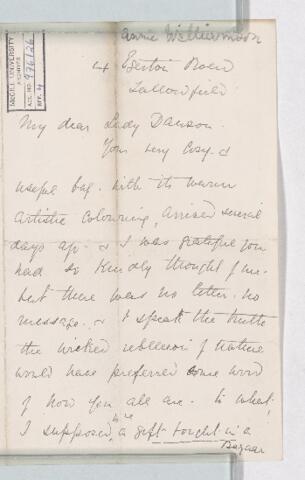 Annie Williamson
McGILL UNIVERSITY
ARCHIVES
ACC. NO. 926/26
REF. 4
4 Egerton Road
Fallowfield
My dear Lady Dawson.
Your very cosy &
useful bag. with its warm
artistic colouring, arrived several
days ago. & I was grateful you
had so kindly thought of me.
but there was no letter. no
message. & to speak the truth
the wicked rebellion of nature
would have preferred some word
of how you all are. to what,
I supposed, were a gift bought in a
Bazaar